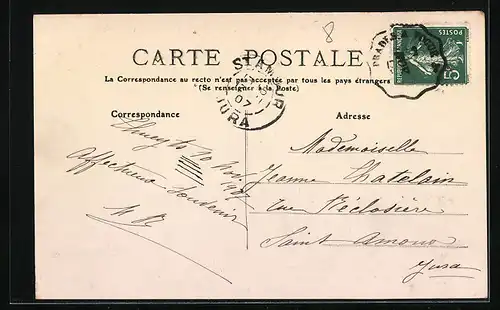 8
CARTE POSTALE
La Correspondance au recto n'est pas acceptée par tous les pays étrangers
(Se renseigner à la Poste)
Correspondance
Adresse
POSTES
REPUBLIQUE FRANÇAISE
5
PRADE
ST AMOUR
07
JURA
10 Nov. 1907
Affectueux Souvenir
Mademoiselle
Jeanne Chatelain
rue
Saint Amour
Jura